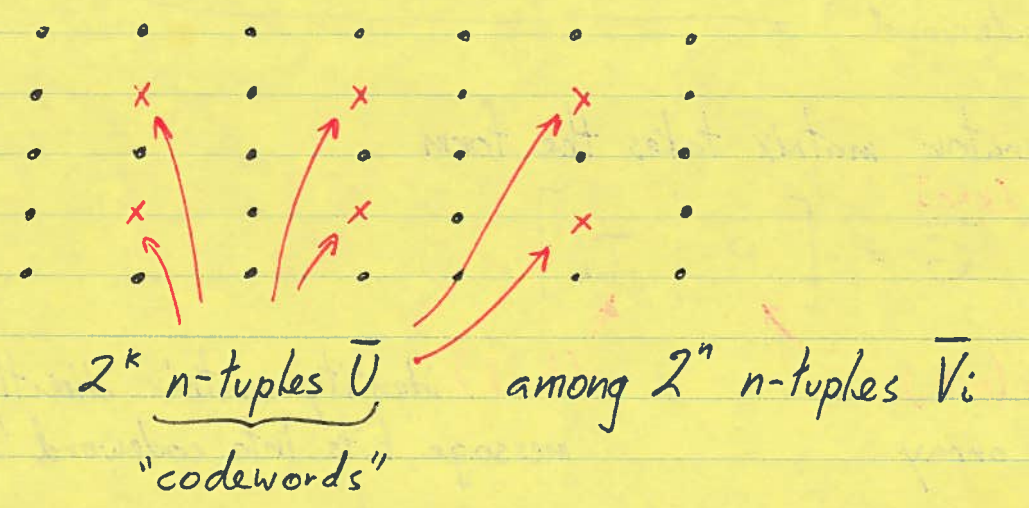 2ᵏ n-tuples U̅ among 2ⁿ n-tuples V̅i
"codewords"